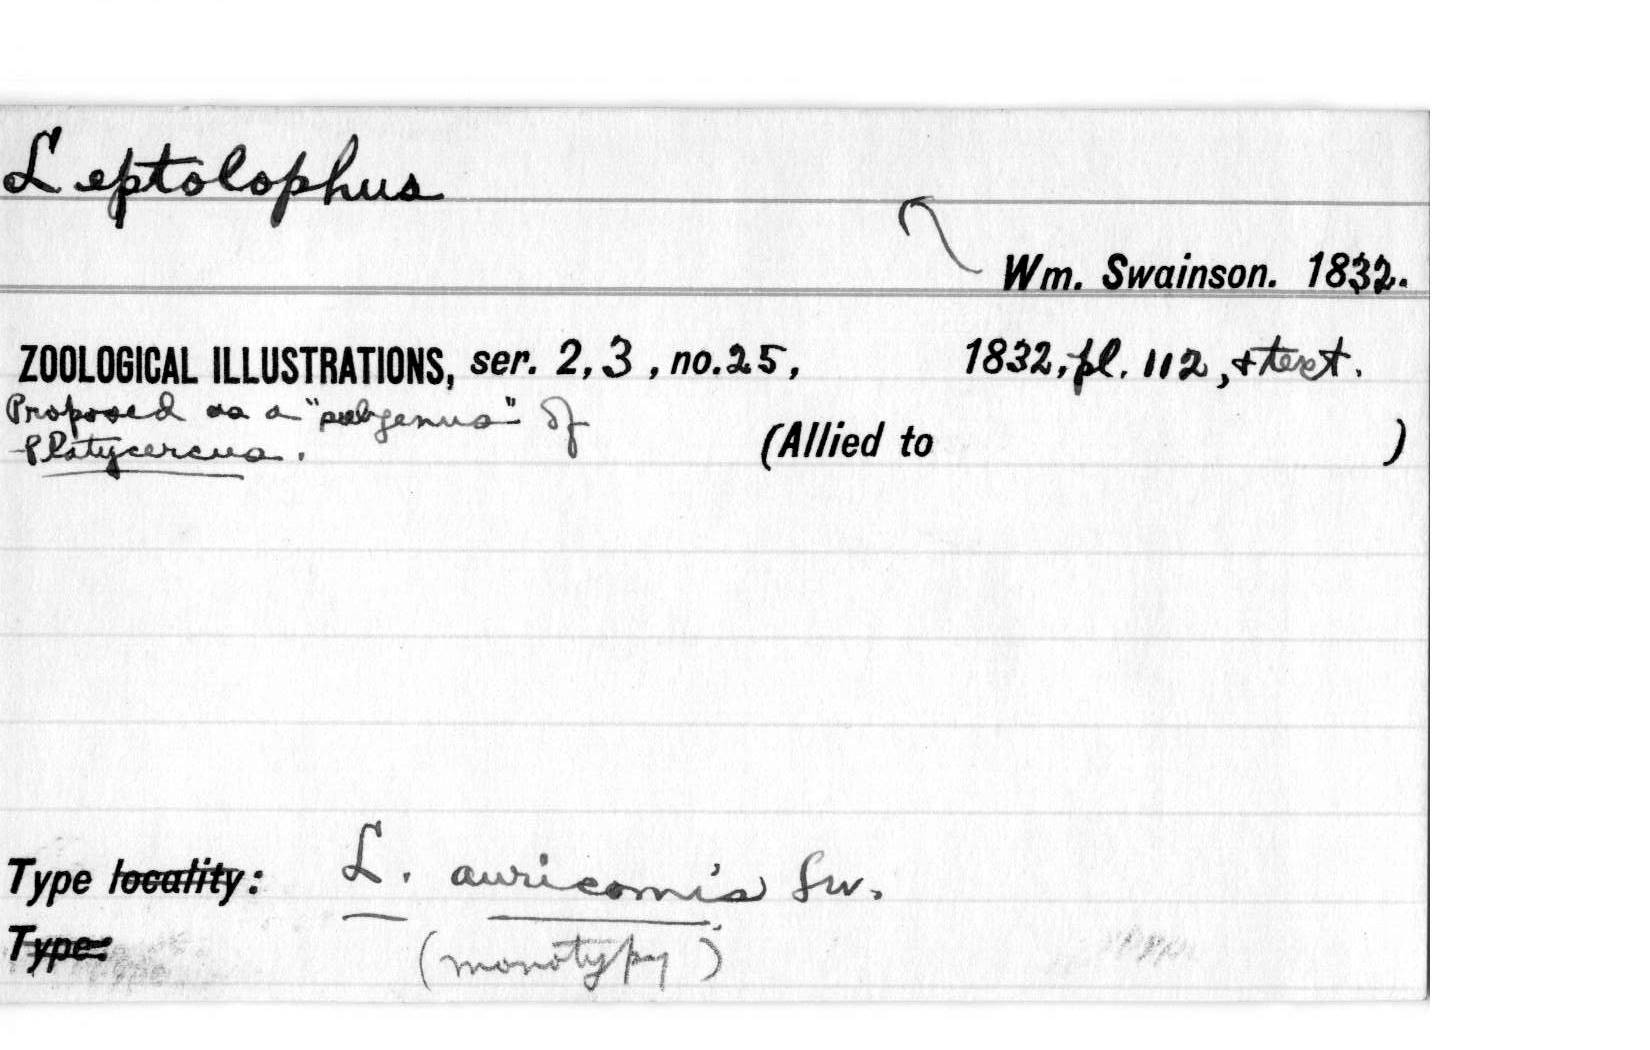 Leptolophus
Wm. Swainson. 1832.
ZOOLOGICAL ILLUSTRATIONS, ser. 2, 3, no. 25, 1832, pl. 112, & text.
Proposed as a "subgenus" of
Platycercus.
(Allied to )
Type locality: L. auricomis Sw.
Type:
(monotypy)